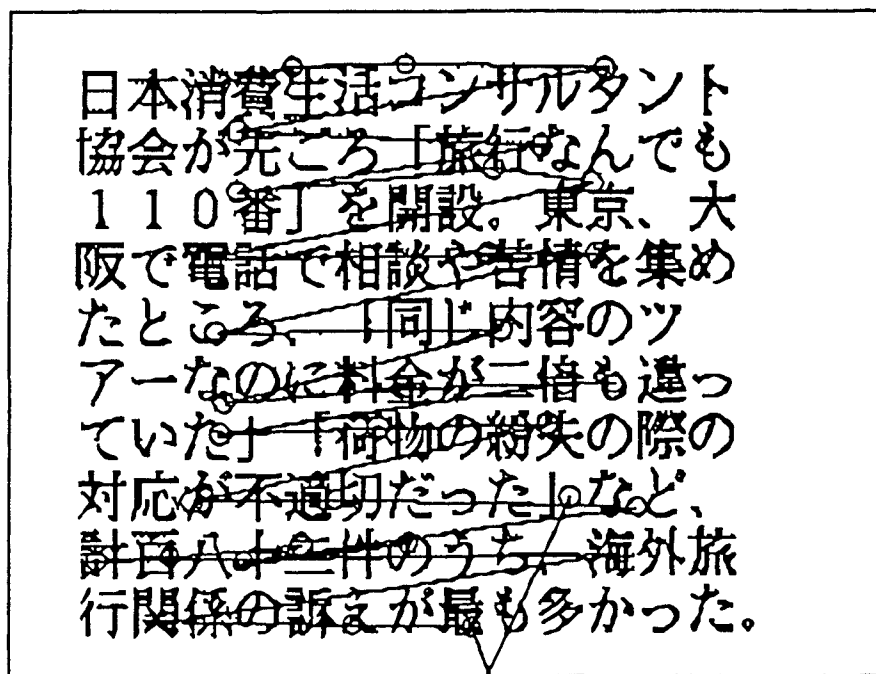 日本消費生活コンサルタント
協会が先ごろ「旅行なんでも
110番」を開設。東京、大
阪で電話で相談や苦情を集め
たところ、「同じ内容のツ
アーなのに料金が二倍も違っ
ていた」「荷物の紛失の際の
対応が不適切だった」など、
計百八十二件のうち、海外旅
行関係の訴えが最も多かった。